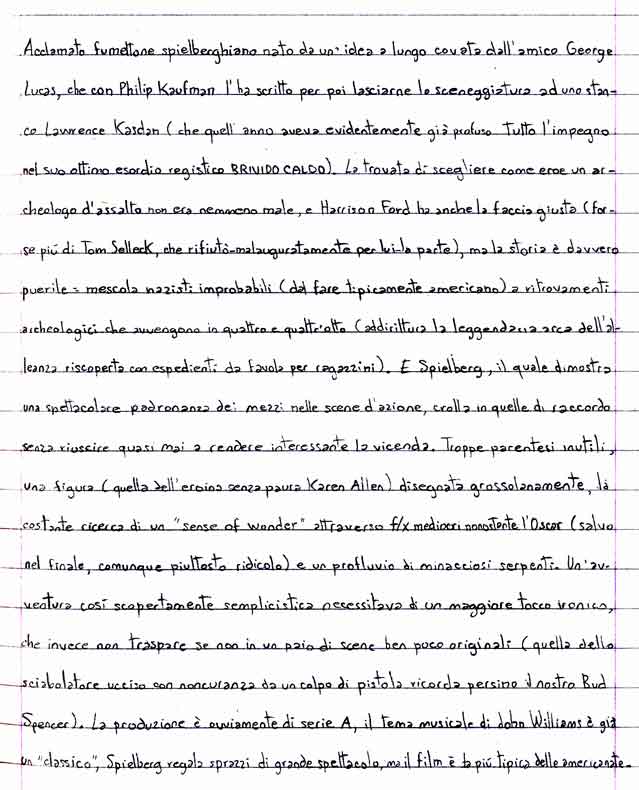 Acclamato fumettone spielberghiano nato da un'idea a lungo covata dall'amico George
Lucas, che con Philip Kaufman l'ha scritto per poi lasciarne la sceneggiatura ad uno stan-
co Lawrence Kasdan (che quell'anno aveva evidentemente già profuso tutto l'impegno
nel suo ottimo esordio registico BRIVIDO CALDO). La trovata di scegliere come eroe un ar-
cheologo d'assalto non era nemmeno male, e Harrison Ford ha anche la faccia giusta (for-
se più di Tom Selleck, che rifiutò-malauguratamente per lui-la parte), ma la storia è davvero
puerile: mescola nazisti improbabili (dal fare tipicamente americano) a ritrovamenti
archeologici che avvengono in quattro e quattr'otto (addirittura la leggendaria arca dell'al-
leanza riscoperta con espedienti da favola per ragazzini). E Spielberg, il quale dimostra
una spettacolare padronanza dei mezzi nelle scene d'azione, crolla in quelle di raccordo
senza riuscire quasi mai a rendere interessante la vicenda. Troppe parentesi inutili,
una figura (quella dell'eroina senza paura Karen Allen) disegnata grossolanamente, la
costante ricerca di un "sense of wonder" attraverso f/x mediocri nonostante l'Oscar (salvo
nel finale, comunque piuttosto ridicolo) e un profluvio di minacciosi serpenti. Un'av-
ventura così scopertamente semplicistica necessitava di un maggiore tocco ironico,
che invece non traspare se non in un paio di scene ben poco originali (quella dello
sciabolatore ucciso con noncuranza da un colpo di pistola ricorda persino il nostro Bud
Spencer). La produzione è ovviamente di serie A, il tema musicale di John Williams è già
un "classico", Spielberg regala sprazzi di grande spettacolo, ma il film è la più tipica delle americanate.